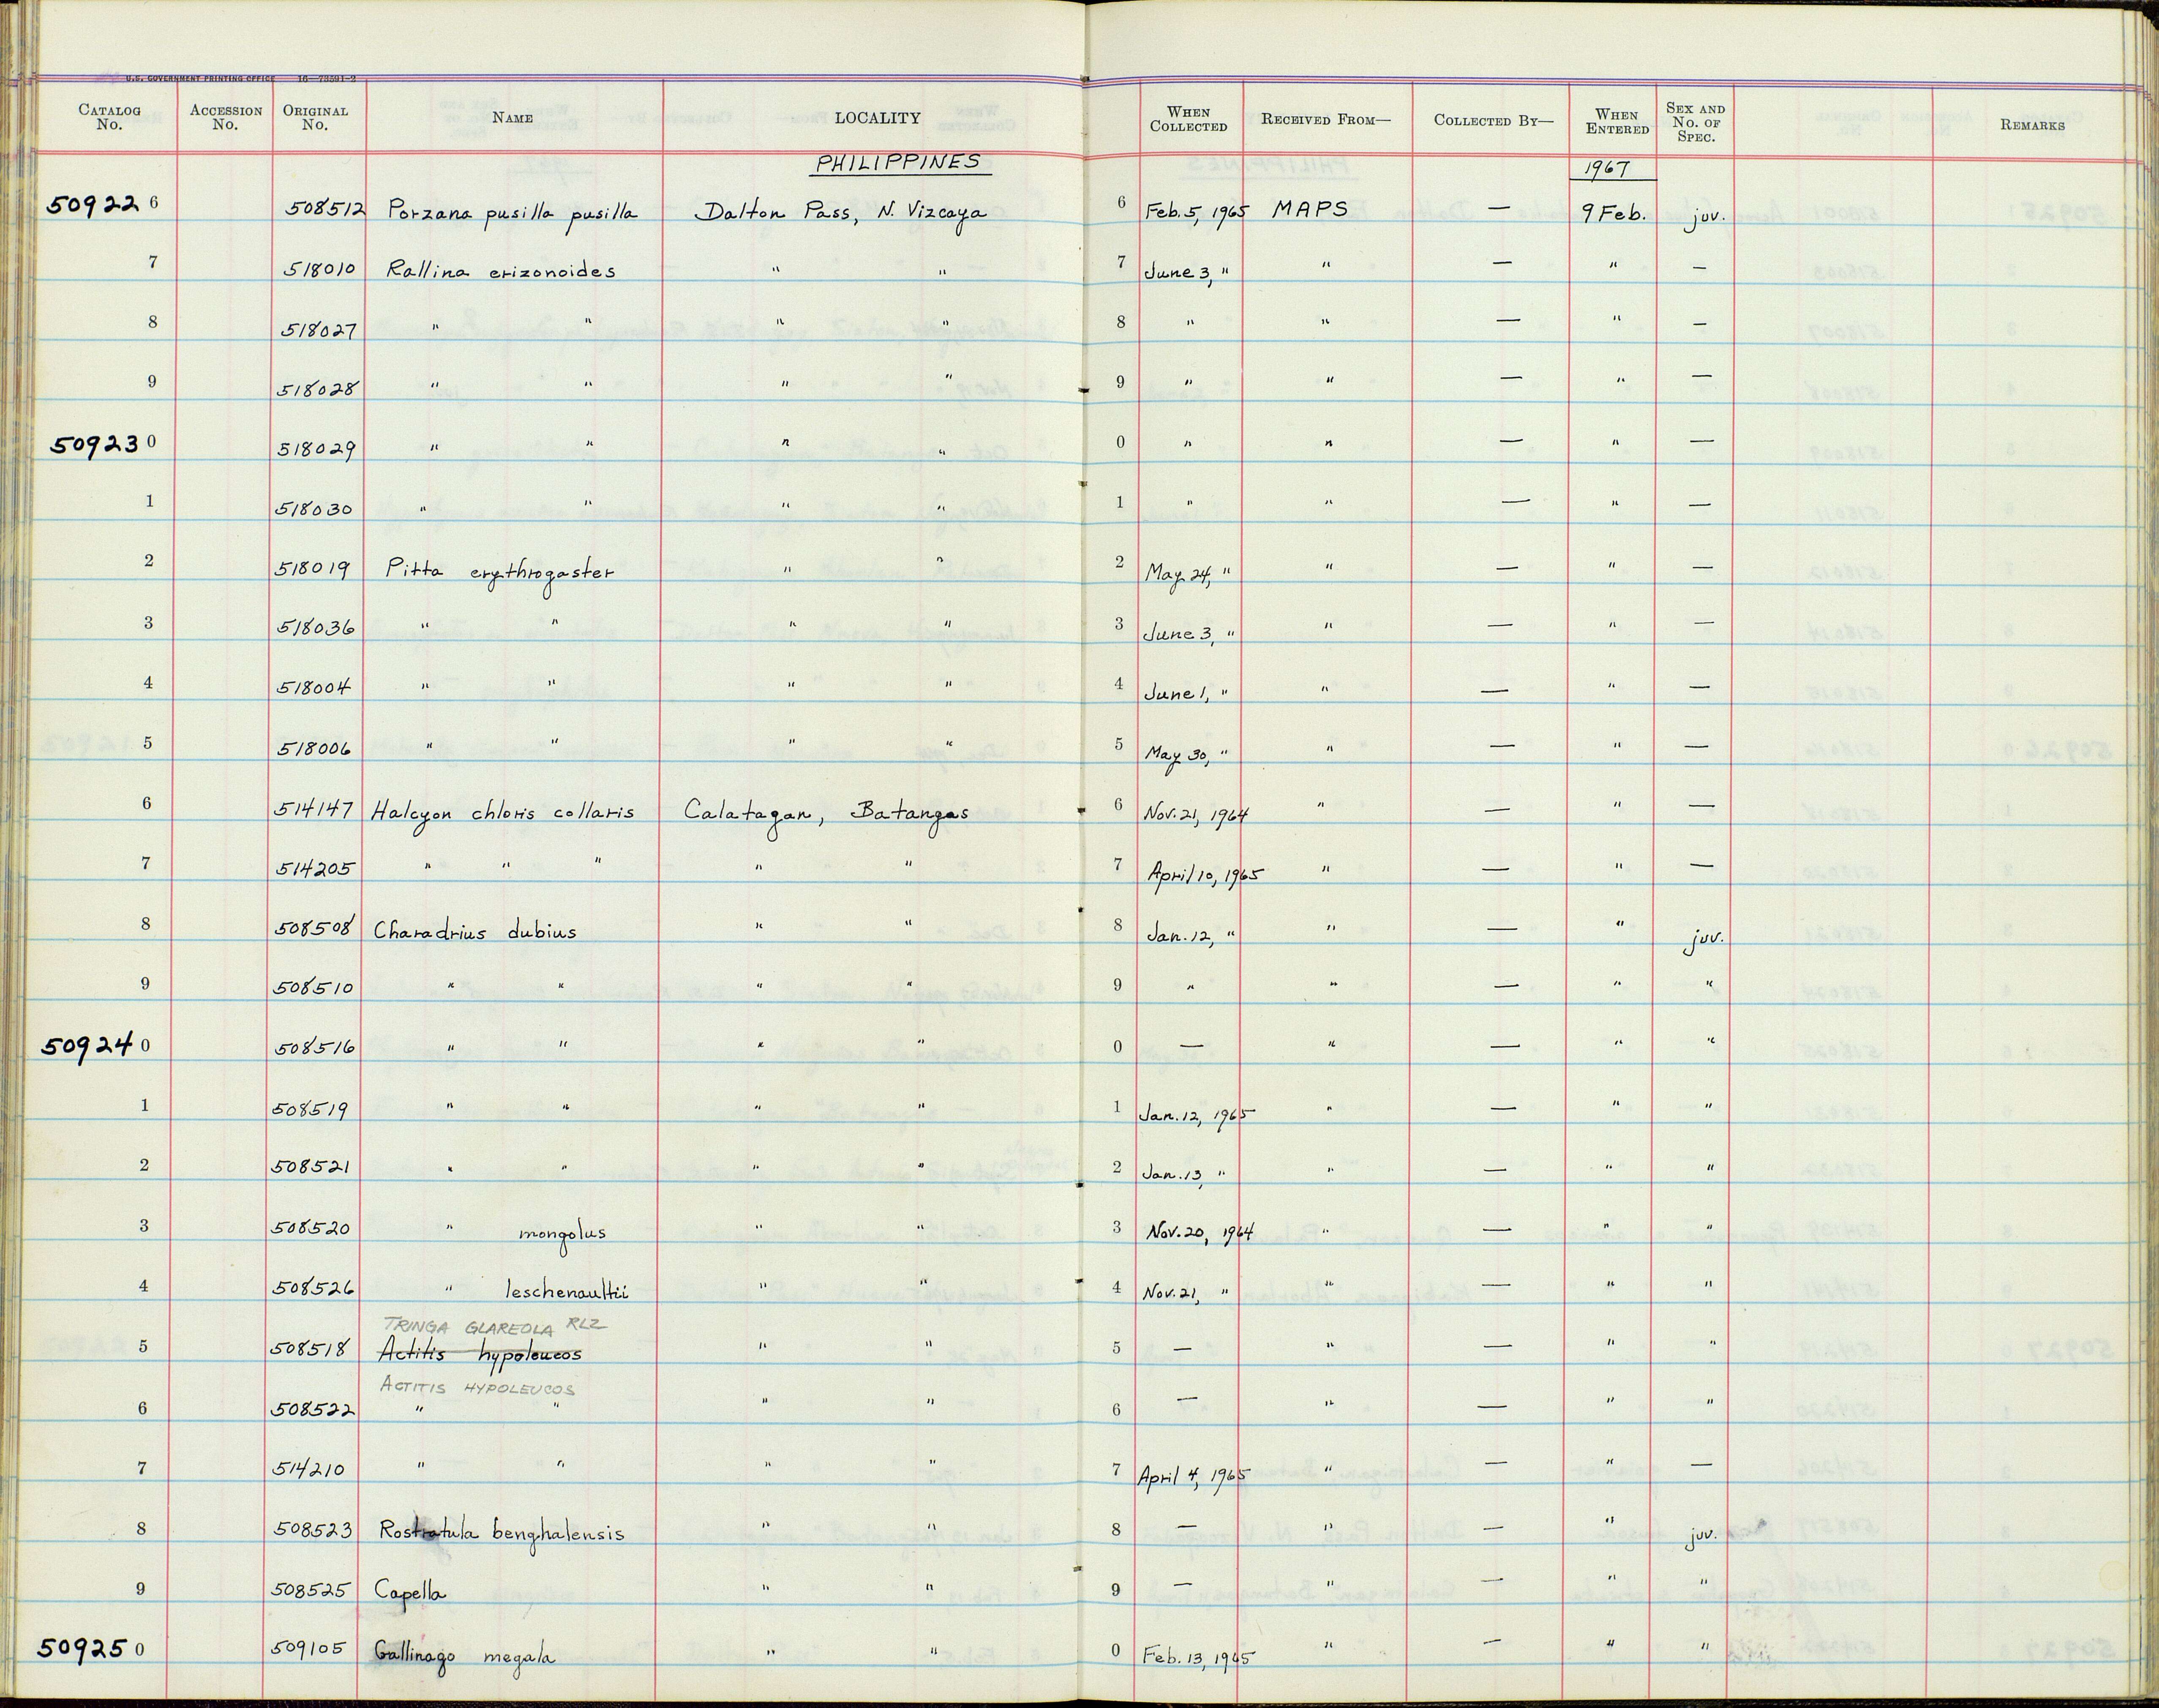 U.S. GOVERNMENT PRINTING OFFICE 16—73591-2
CATALOG No. ACCESSION No. ORIGINAL No. NAME LOCALITY WHEN COLLECTED RECEIVED FROM— COLLECTED BY— WHEN ENTERED SEX AND No. OF SPEC. REMARKS
PHILIPPINES 1967
50922 6 508512 Porzana pusilla pusilla Dalton Pass, N. Vizcaya 6 Feb. 5, 1965 MAPS — 9 Feb. juv.
7 518010 Rallina erizonoides " " 7 June 3, " " — " —
8 518027 " " " " 8 " " — " —
9 518028 " " " " 9 " " — " —
50923 0 518029 " " " " 0 " " — " —
1 518030 " " " " 1 " " — " —
2 518019 Pitta erythrogaster " " 2 May 24, " " — " —
3 518036 " " " " 3 June 3, " " — " —
4 518004 " " " " 4 June 1, " " — " —
5 518006 " " " " 5 May 30, " " — " —
6 514147 Halcyon chloris collaris Calatagan, Batangas 6 Nov. 21, 1964 " — " —
7 514205 " " " " " 7 April 10, 1965 " — " —
8 508508 Charadrius dubius " " 8 Jan. 12, " " — " juv.
9 508510 " " " " 9 " " — " "
50924 0 508516 " " " " 0 — " — " "
1 508519 " " " " 1 Jan. 12, 1965 " — " "
2 508521 " " " " 2 Jan. 13, " " — " "
3 508520 " mongolus " " 3 Nov. 20, 1964 " — " "
4 508526 " leschenaultii " " 4 Nov. 21, " " — " "
TRINGA GLAREOLA RLZ
5 508518 Actitis hypoleucos " " 5 — " — " "
ACTITIS HYPOLEUCOS
6 508522 " " " " 6 — " — " "
7 514210 " " " " 7 April 4, 1965 " — " —
8 508523 Rostratula benghalensis " " 8 — " — " juv.
9 508525 Capella " " 9 — " — " "
50925 0 509105 Gallinago megala " " 0 Feb. 13, 1965 " — " "